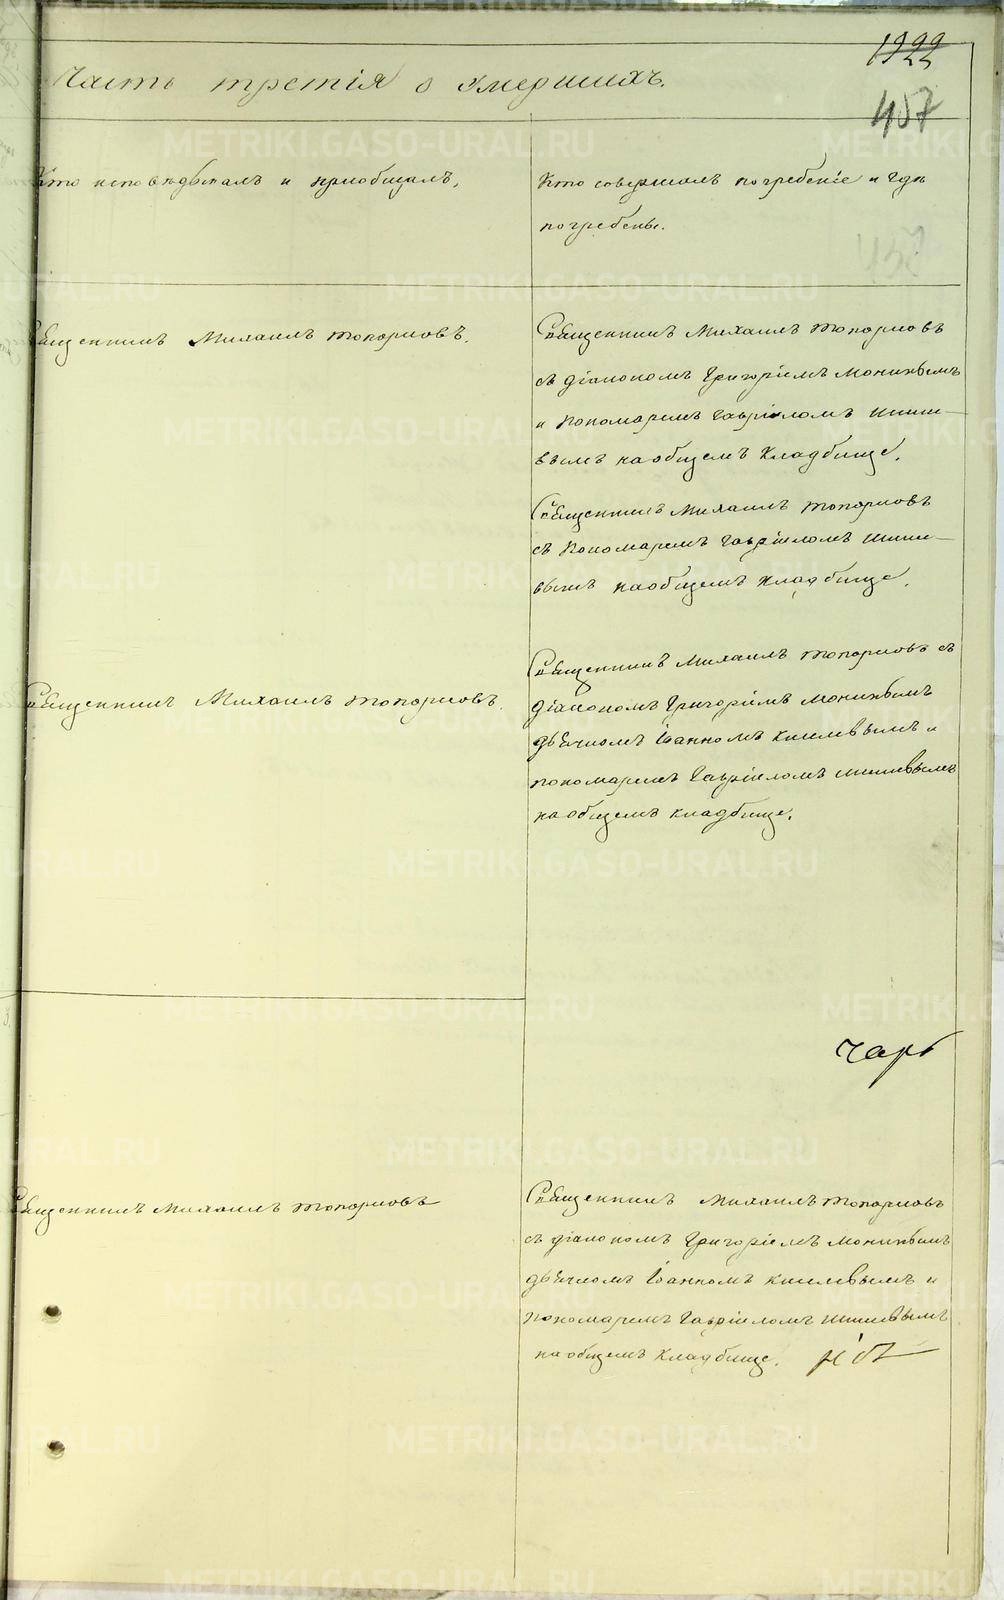 1922
Часть третія о умершихъ.
457
Кто исповѣдывалъ и пріобщалъ,
Кто совершалъ погребеніе и гдѣ
погребены.
457
Священникъ Михаилъ Топорковъ.
Священникъ Михаилъ Топорковъ
съ діакономъ Григоріемъ
и Пономаремъ Гавріиломъ
на общемъ Кладбище.
Священникъ Михаилъ Топорковъ
съ Пономаремъ Гавріиломъ
на общемъ Кладбище.
Священникъ Михаилъ Топорковъ.
Священникъ Михаилъ Топорковъ съ
діакономъ Григоріемъ
дьячкомъ Іоанномъ и
пономаремъ Гавріиломъ
на общемъ кладбище.
Священникъ Михаилъ Топорковъ
Священникъ Михаилъ Топорковъ
съ діакономъ Григоріемъ
дьячкомъ Іоанномъ и
пономаремъ Гавріиломъ
на общемъ Кладбище.
METRIKI.GASO-URAL.RU